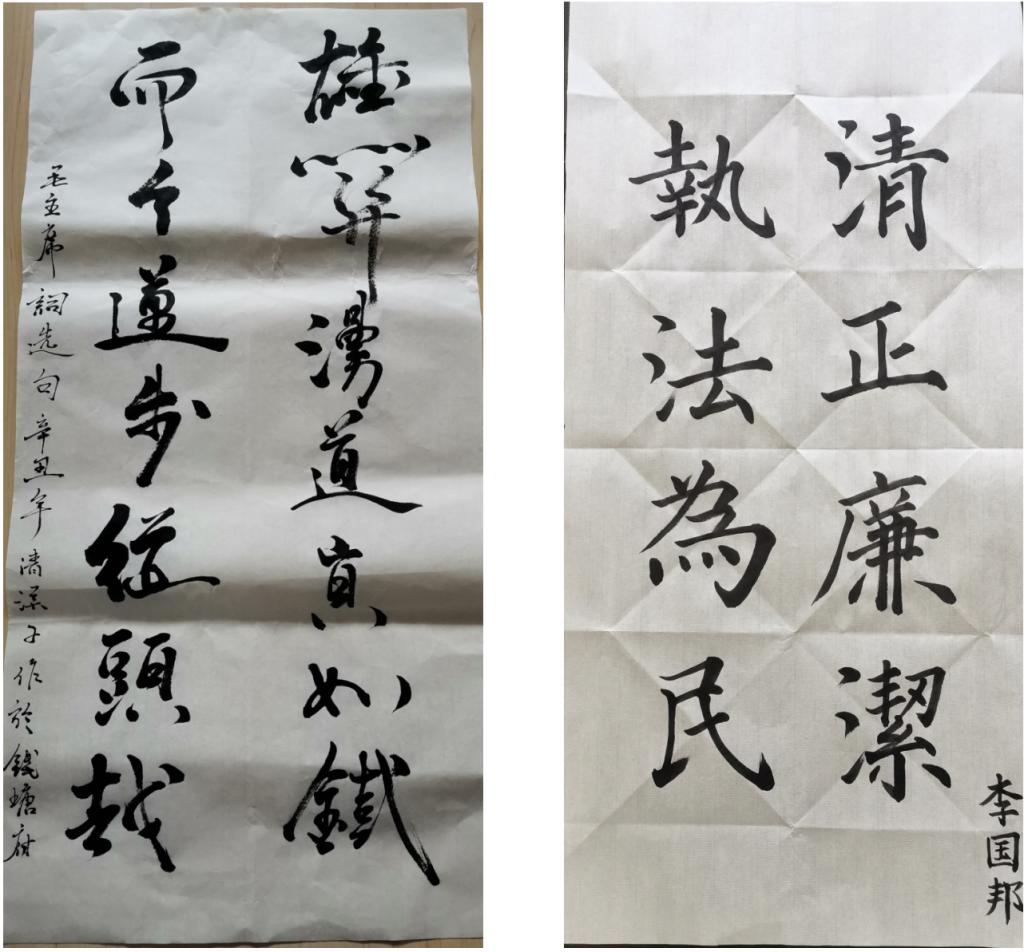 雄關漫道真如鐵
而今邁步從頭越
毛主席詞选句辛丑年清子作於錢塘府
清正廉潔
執法為民
李国邦